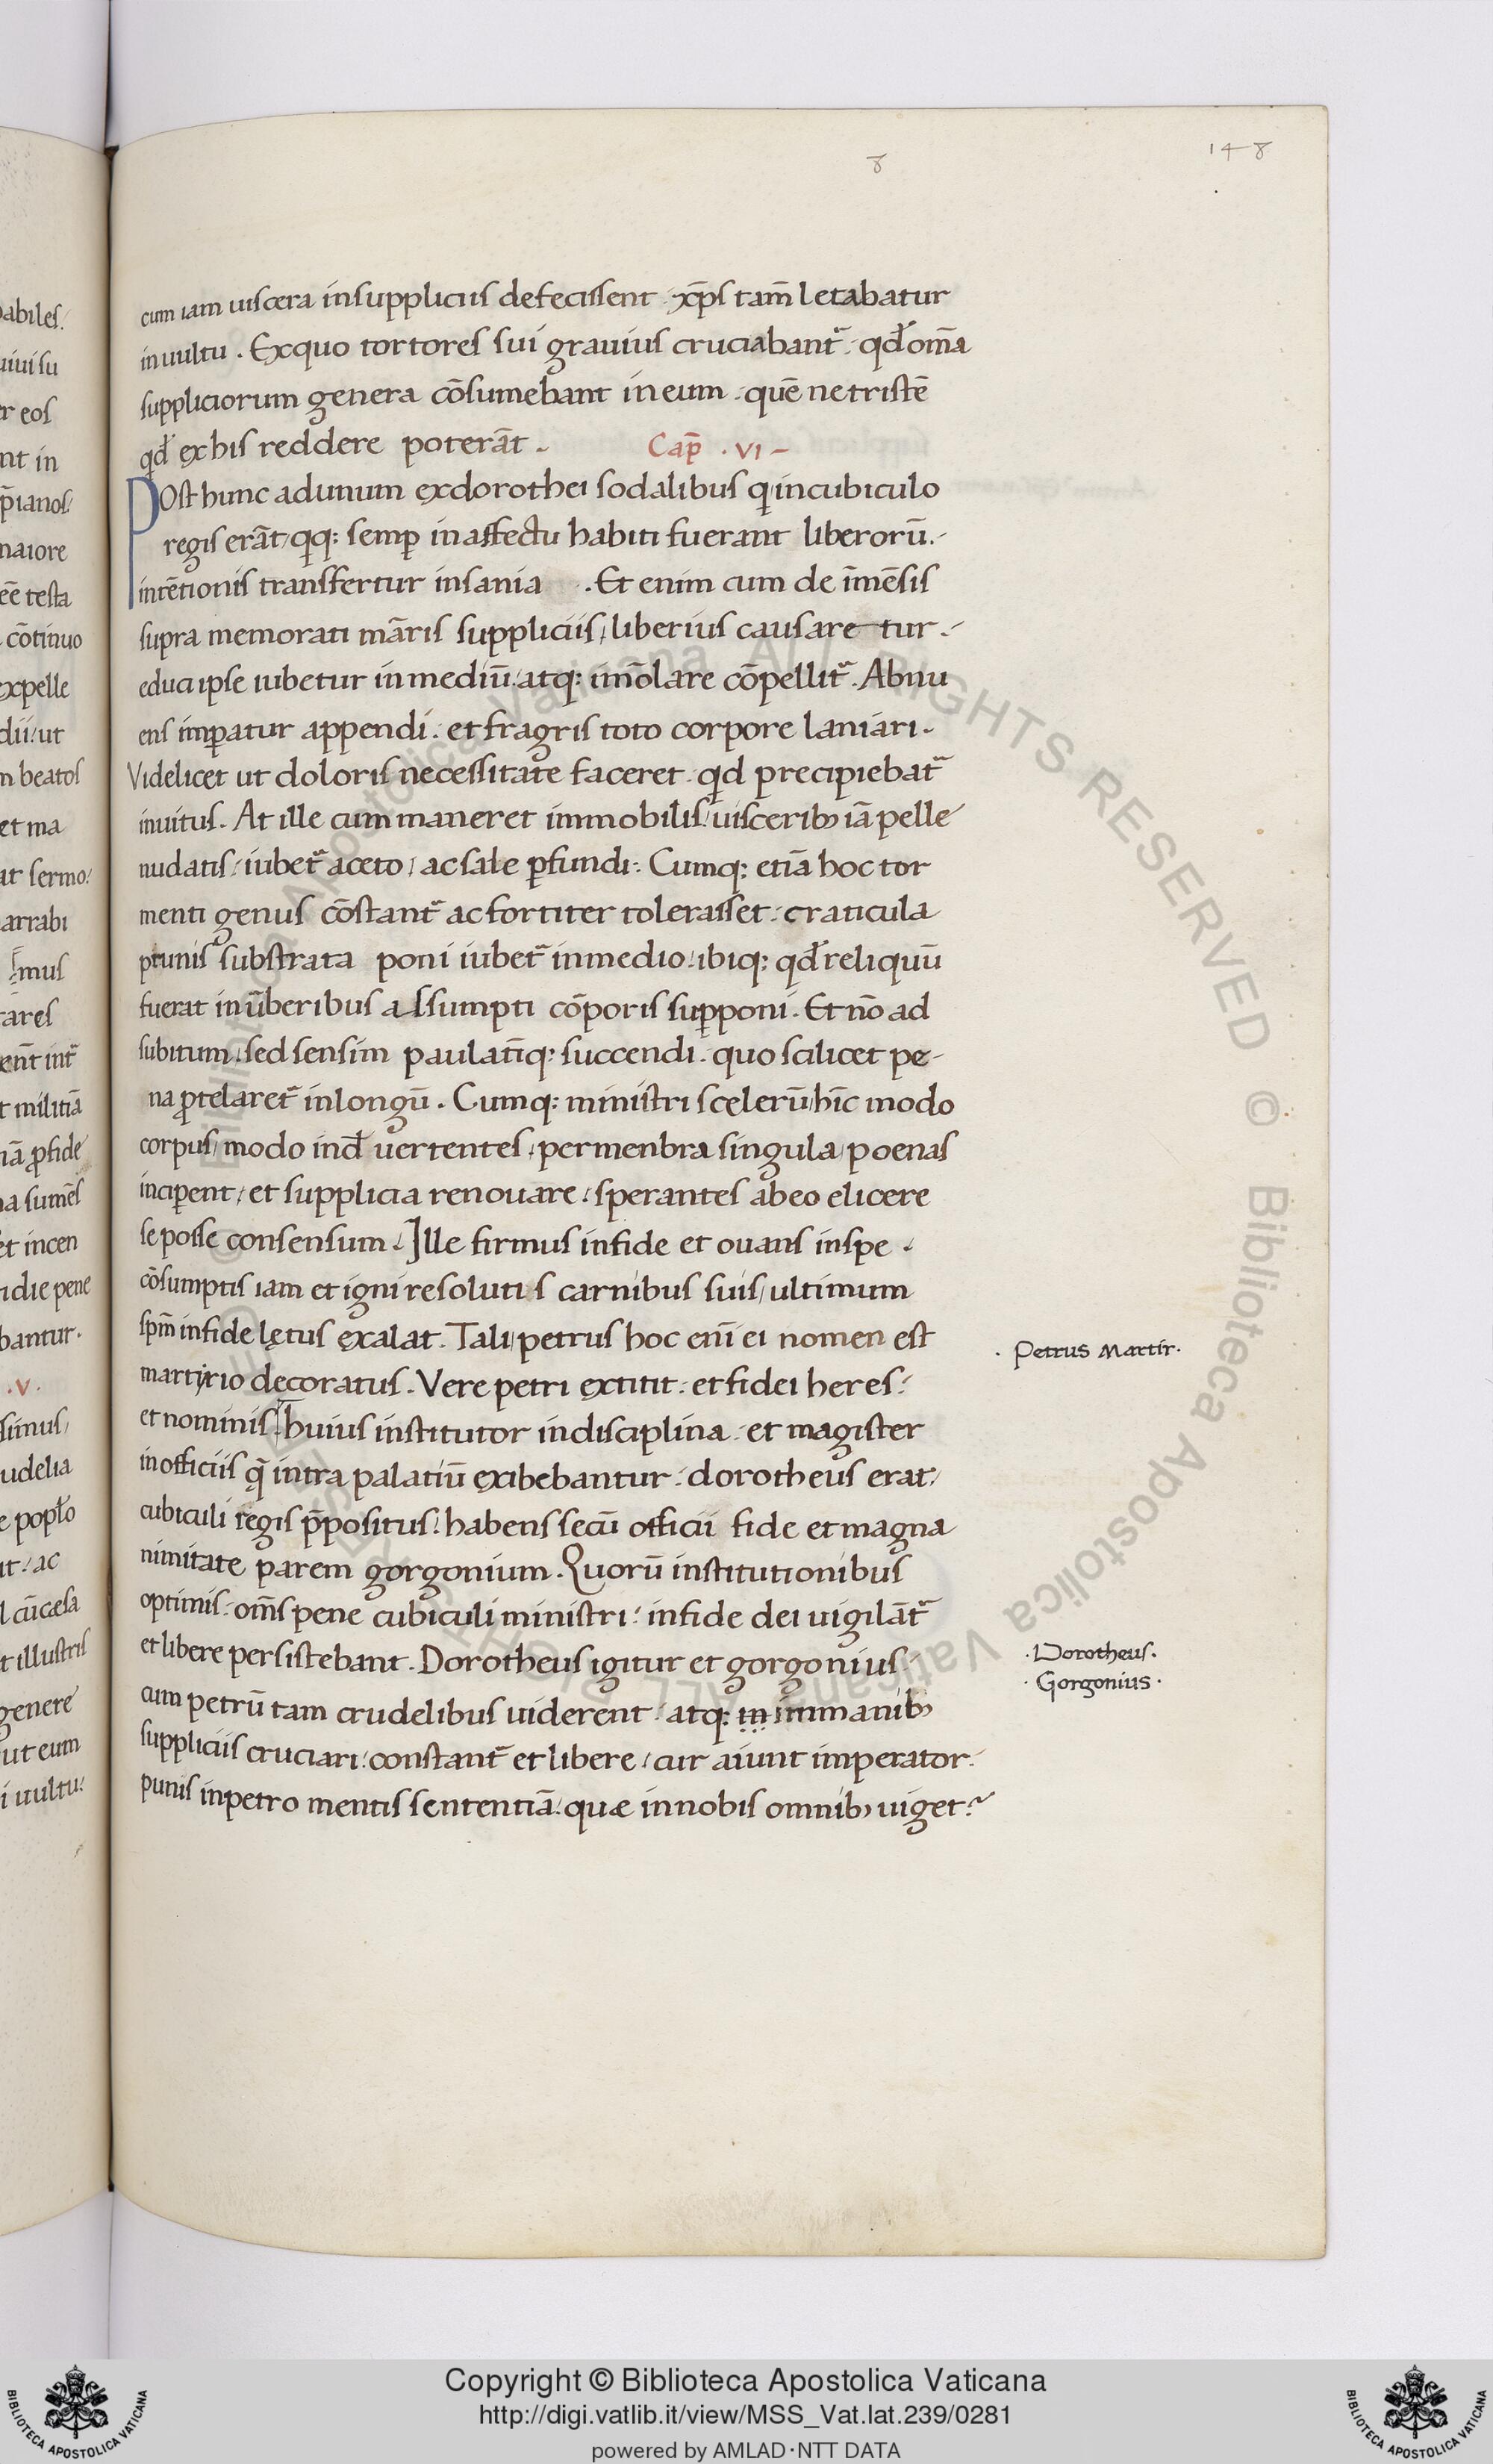 8
148
cum iam uiscera in suppliciis defecissent. xp̄s tam̄ letabatur
in uultu. Ex quo tortores sui grauius cruciabant᷑. qd̛ om̄a
suppliciorum genera cōsumebant in eum. quē ne tristē
qd̛ ex his reddere poterāt.
Cap̄ .VI
Post hunc ad unum ex dorothei sodalibus qͥ in cubiculo
regis erāt, qͥq; semꝑ in affectu habiti fuerant liberorū.
intētionis transfertur insania. Et enim cum de īmēsis
supra memorati mr̄aris suppliciis, liberius causaretur.
educi ipse iubetur in mediū. atq; im̄olare cōpellit᷑. Abnu
ens imꝑatur appendi. et fragris toto corpore laniari.
Videlicet ut doloris necessitate faceret. qͥd precipiebat᷑
inuitus. At ille cum maneret immobilis, uisceribꝰ iā pelle
nudatis, iubet᷑ aceto, ac sale ꝑfundi. Cumq; etiā hoc tor
menti genus cōstant᷑ ac fortiter tolerasset. craticula
prunis substrata poni iubet᷑ in medio. ibiq; qd̛ reliquū
fuerat in ūberibus assumpti cōporis supponi. Et nō ad
subitum, sed sensim paulatīq; succendi. quo scilicet pe-
na ꝓtelaret᷑ in longū. Cumq; ministri scelerū, hīc modo
corpus, modo ind̄ uertentes, per menbra singula, poenas
inciꝑent, et supplicia renouare, sperantes ab eo elicere
se posse consensum. Ille firmus in fide et ouans in spe.
cōsumptis iam et igni resolutis carnibus suis, ultimum
spm̄ in fide lętus exalat. Tali, petrus hoc enī ei nomen est
martyrio decoratus. Vere petri extitit. et fidei heres.
et nominis. huius institutor in disciplina. et magister
in officiis q̄ intra palatiū exibebantur. dorotheus erat,
cubiculi regis p̄positus. habens secū officii fide et magna
nimitate parem gorgonium. Quorū institutionibus
optimis. om̄s pene cubiculi ministri. in fide dei uigilāt᷑
et libere persistebant. Dorotheus igitur et gorgonius.
cum petrū tam crudelibus uiderent. atq; in immanibꝰ
suppliciis cruciari. constant᷑ et libere, cur aiunt imperator.
punis in petro mentis sententiā. quæ in nobis omnibꝰ uiget?
. Petrus Martir.
. Dorotheus.
. Gorgonius.
Copyright © Biblioteca Apostolica Vaticana
http://digi.vatlib.it/view/MSS_Vat.lat.239/0281
powered by AMLAD·NTT DATA
BIBLIOTECA APOSTOLICA VATICANA
BIBLIOTECA APOSTOLICA VATICANA